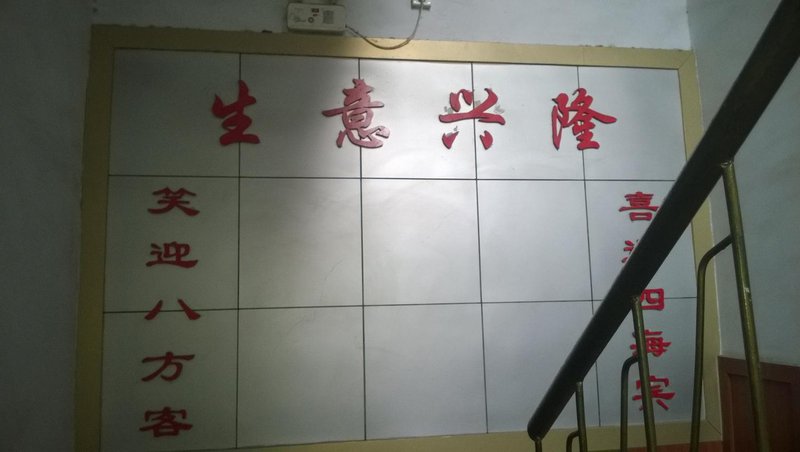 生意兴隆
笑迎八方客
喜迎四海宾